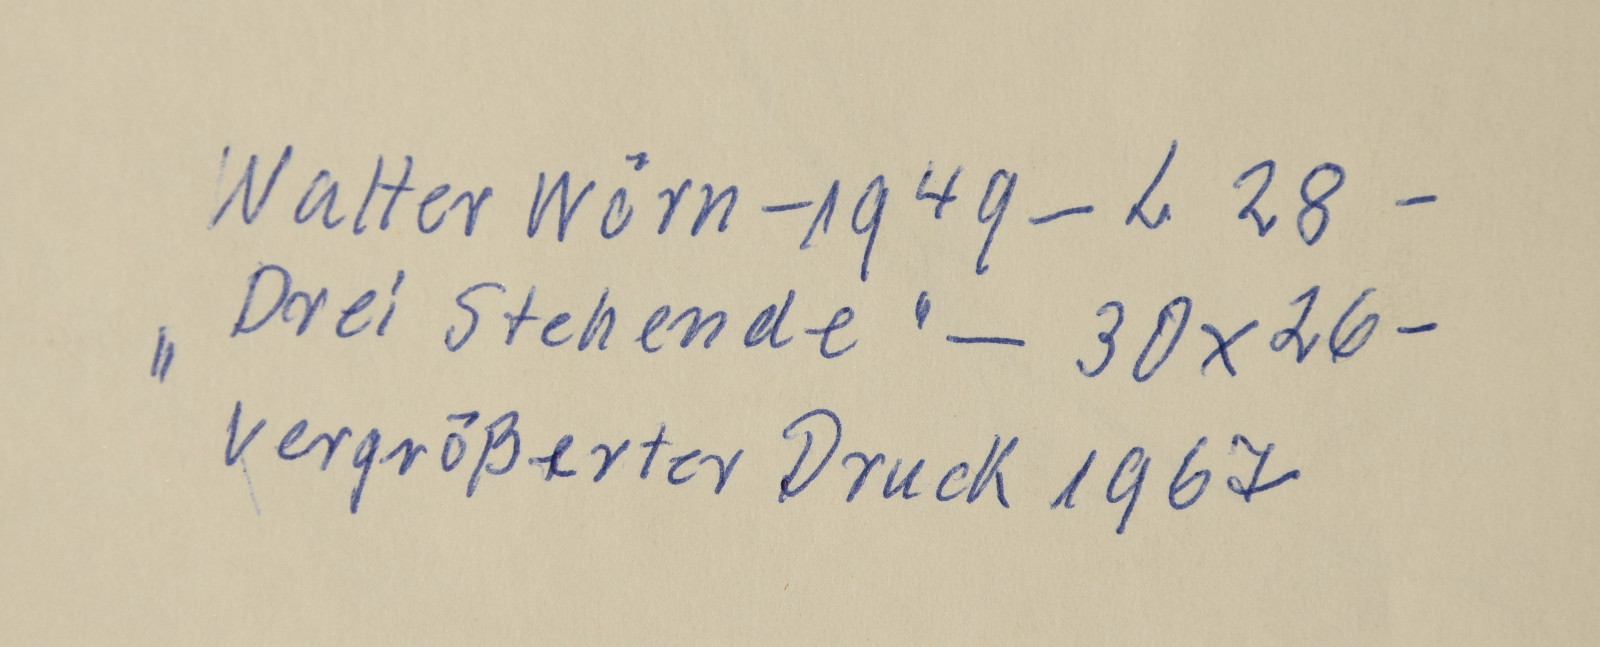 Walter Wörn – 1949 – L 28 –
„Drei Stehende" – 30 x 26 –
Vergrößerter Druck 1967